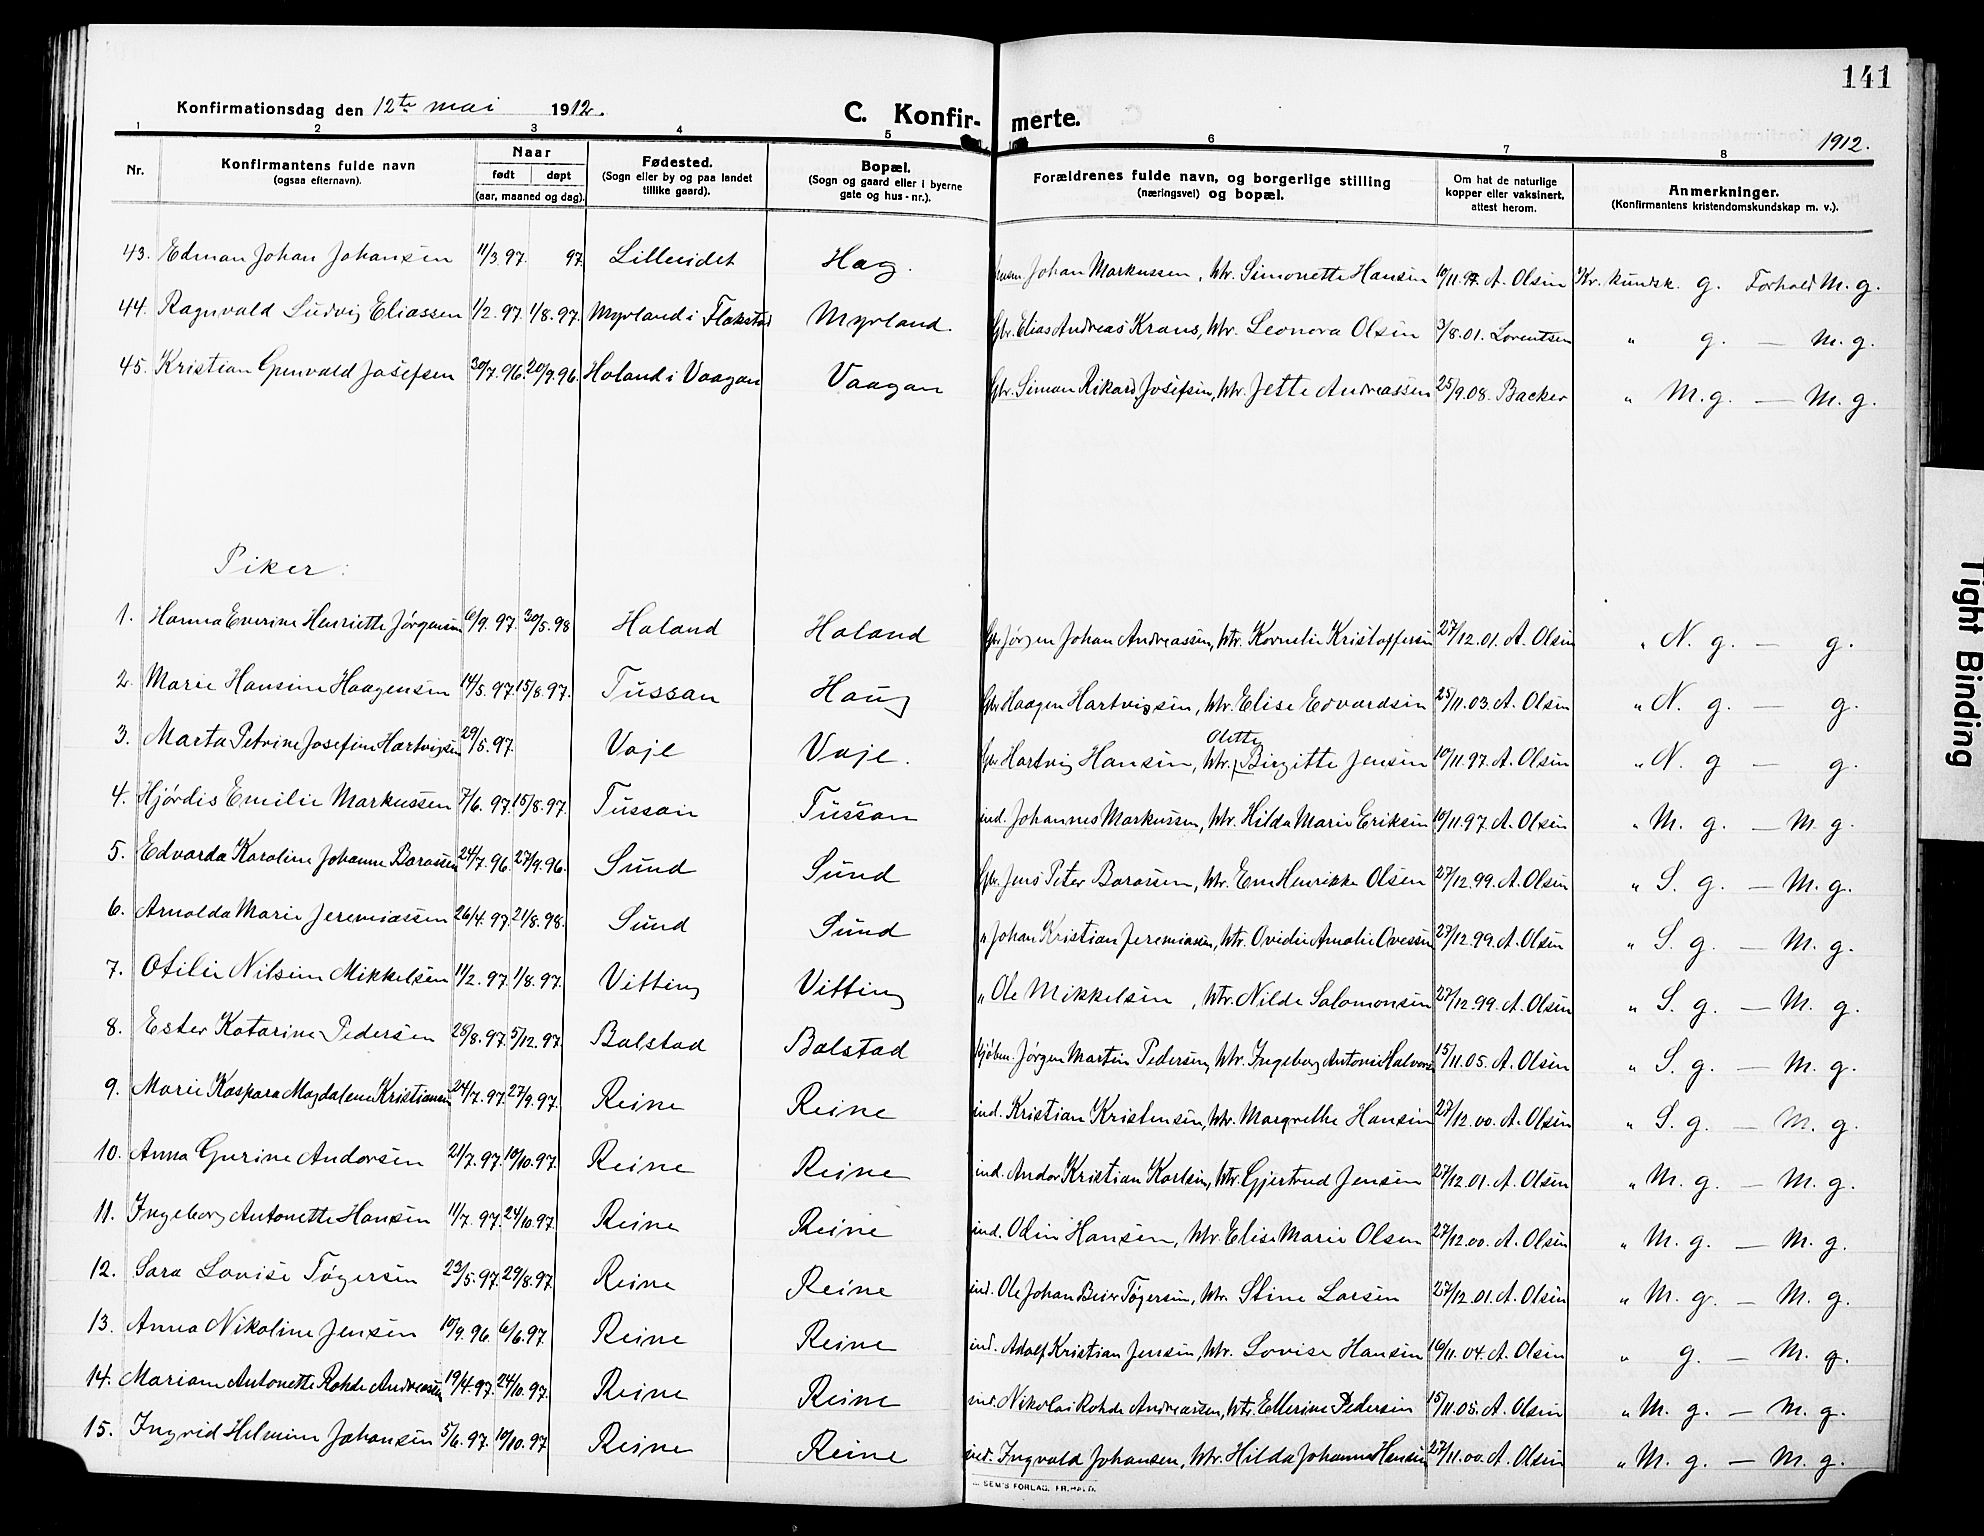 141
Konfirmationsdag den 12te mai 1912. C. Konfir- merte. 1912.
1 2 3 4 5 6 7 8
Nr. Konfirmantens fulde navn (ogsaa efternavn). Naar født døpt (aar, maaned og dag). Fødested. (Sogn eller by og paa landet tillike gaard). Bopæl. (Sogn og gaard eller i byerne gate og hus-nr.). Forældrenes fulde navn, og borgerlige stilling (næringsvei) og bopæl. Om hat de naturlige kopper eller vaksinert, attest herom. Anmerkninger. (Konfirmantens kristendomskundskap m. v.).
43. Edman Johan Johansen 11/3.97. 97. Lilleeidet Hag. Johan Markussen, htr. Simonette Hansen 10/11.97. A. Olsen Kr. kundsk. g. Forhold M. g.
44. Ragnvald Ludvig Eliassen 1/2.97. 1/8.97. Myrland i Flakstad Myrland. Gbr. Elias Andreas Kraus, htr. Leonora Olsen 3/8.01. Lorentsen " g. — M. g.
45. Kristian Gunvald Josefsen 30/7.96. 20/9.96. Holand i Vaagan Vaagan Gbr. Simon Rikard Josefsen, htr. Jette Andreassen 25/9.08. Backer " M. g. — M. g.
Piker:
1. Hanna Everine Henriette Jørgensen 6/9.97. 30/5.98 Holand Holand Gbr. Jørgen Johan Andreassen, htr. Kornelie Kristoffersen 27/12.01. A. Olsen " N. g. — g.
2. Marie Hansine Haagensen 14/5.97. 15/8.97. Tussan Haug Gbr. Haagen Hartvigsen, htr. Elise Edvardsen 25/11.03. A. Olsen " N. g. — g.
3. Marta Petrine Josefine Hartvigsen 29/5.97. Voje Voje. Gbr. Hartvig Hansen, htr. Olette Birgitte Jensen 10/11.97. A. Olsen " N. g — g.
4. Hjørdis Emilie Markussen 7/6.97. 15/8.97. Tussan Tussan ind. Johannes Markussen, htr. Hilda Marie Eriksen 10/11.97. A. Olsen " M. g. — M. g.
5. Edvarda Karoline Johanne Barossen 24/7.96. 27/9.96. Sund Sund Gbr. Jens Peter Barosen, htr. Ene Henrikke Olsen 27/12.99. A. Olsen " S. g. — M. g.
6. Arnolda Marie Jeremiassen 26/4.97. 21/8.98. Sund Sund " Johan Kristian Jeremiassen, htr. Ovidie Amalie Ovessen 27/12.99. A. Olsen " S. g. — M. g.
7. Otilie Nilsine Mikkelsen 11/2.97. 1/8.97. Vitting Vitting " Ole Mikkelsen, htr. Nilde Salomonsen 27/12.99. A. Olsen " S. g. — M. g.
8. Ester Katarine Pedersen 28/8.97. 5/12.97. Balstad Balstad Kjøbm. Jørgen Martin Pedersen, htr. Ingeborg Antonie Halvorsen 15/11.05. A. Olsen " S. g. — M. g.
9. Marie Kaspara Magdalene Kristiansen 24/7.97. 27/9.97. Reine Reine ind. Kristian Kristensen, htr. Margrethe Hansen 27/12.00. A. Olsen " S. g. — M. g.
10. Anna Gurine Andorsen 21/7.97. 10/10.97. Reine Reine ind. Andor Kristian Karlsen, htr. Gjertrud Jensen 27/12.01. A. Olsen " M. g. — M. g.
11. Ingeborg Antonette Hansen 11/7.97. 24/10.97. Reine Reine ind. Olin Hansen, htr. Elise Marie Olsen 27/12.00. A. Olsen " M. g. — M. g.
12. Sara Lovise Tøgersen 23/5.97. 29/8.97. Reine Reine ind. Ole Johan Beier Tøgersen, htr. Stine Larsen 27/12.01. A. Olsen " M. g. — M. g.
13. Anna Nikoline Jensen 10/9.96. 6/6.97. Reine Reine ind. Adolf Kristian Jensen, htr. Lovise Hansen 16/11.04. A. Olsen " g. — M. g.
14. Mariane Antonette Rohde Andreassen 19/4.97. 24/10.97. Reine Reine ind. Nikolai Rohde Andreassen, htr. Ellerine Pedersen 15/11.05. A. Olsen " M. g. — M. g.
15. Ingrid Helmine Johansen 5/6.97. 10/10.97 Reine Reine ind. Ingvald Johansen, htr. Hilda Johanne Hansen 27/11.00. A. Olsen " M. g. — M. g.
SEM'S FORLAG, FR.HALD.
Tight Binding